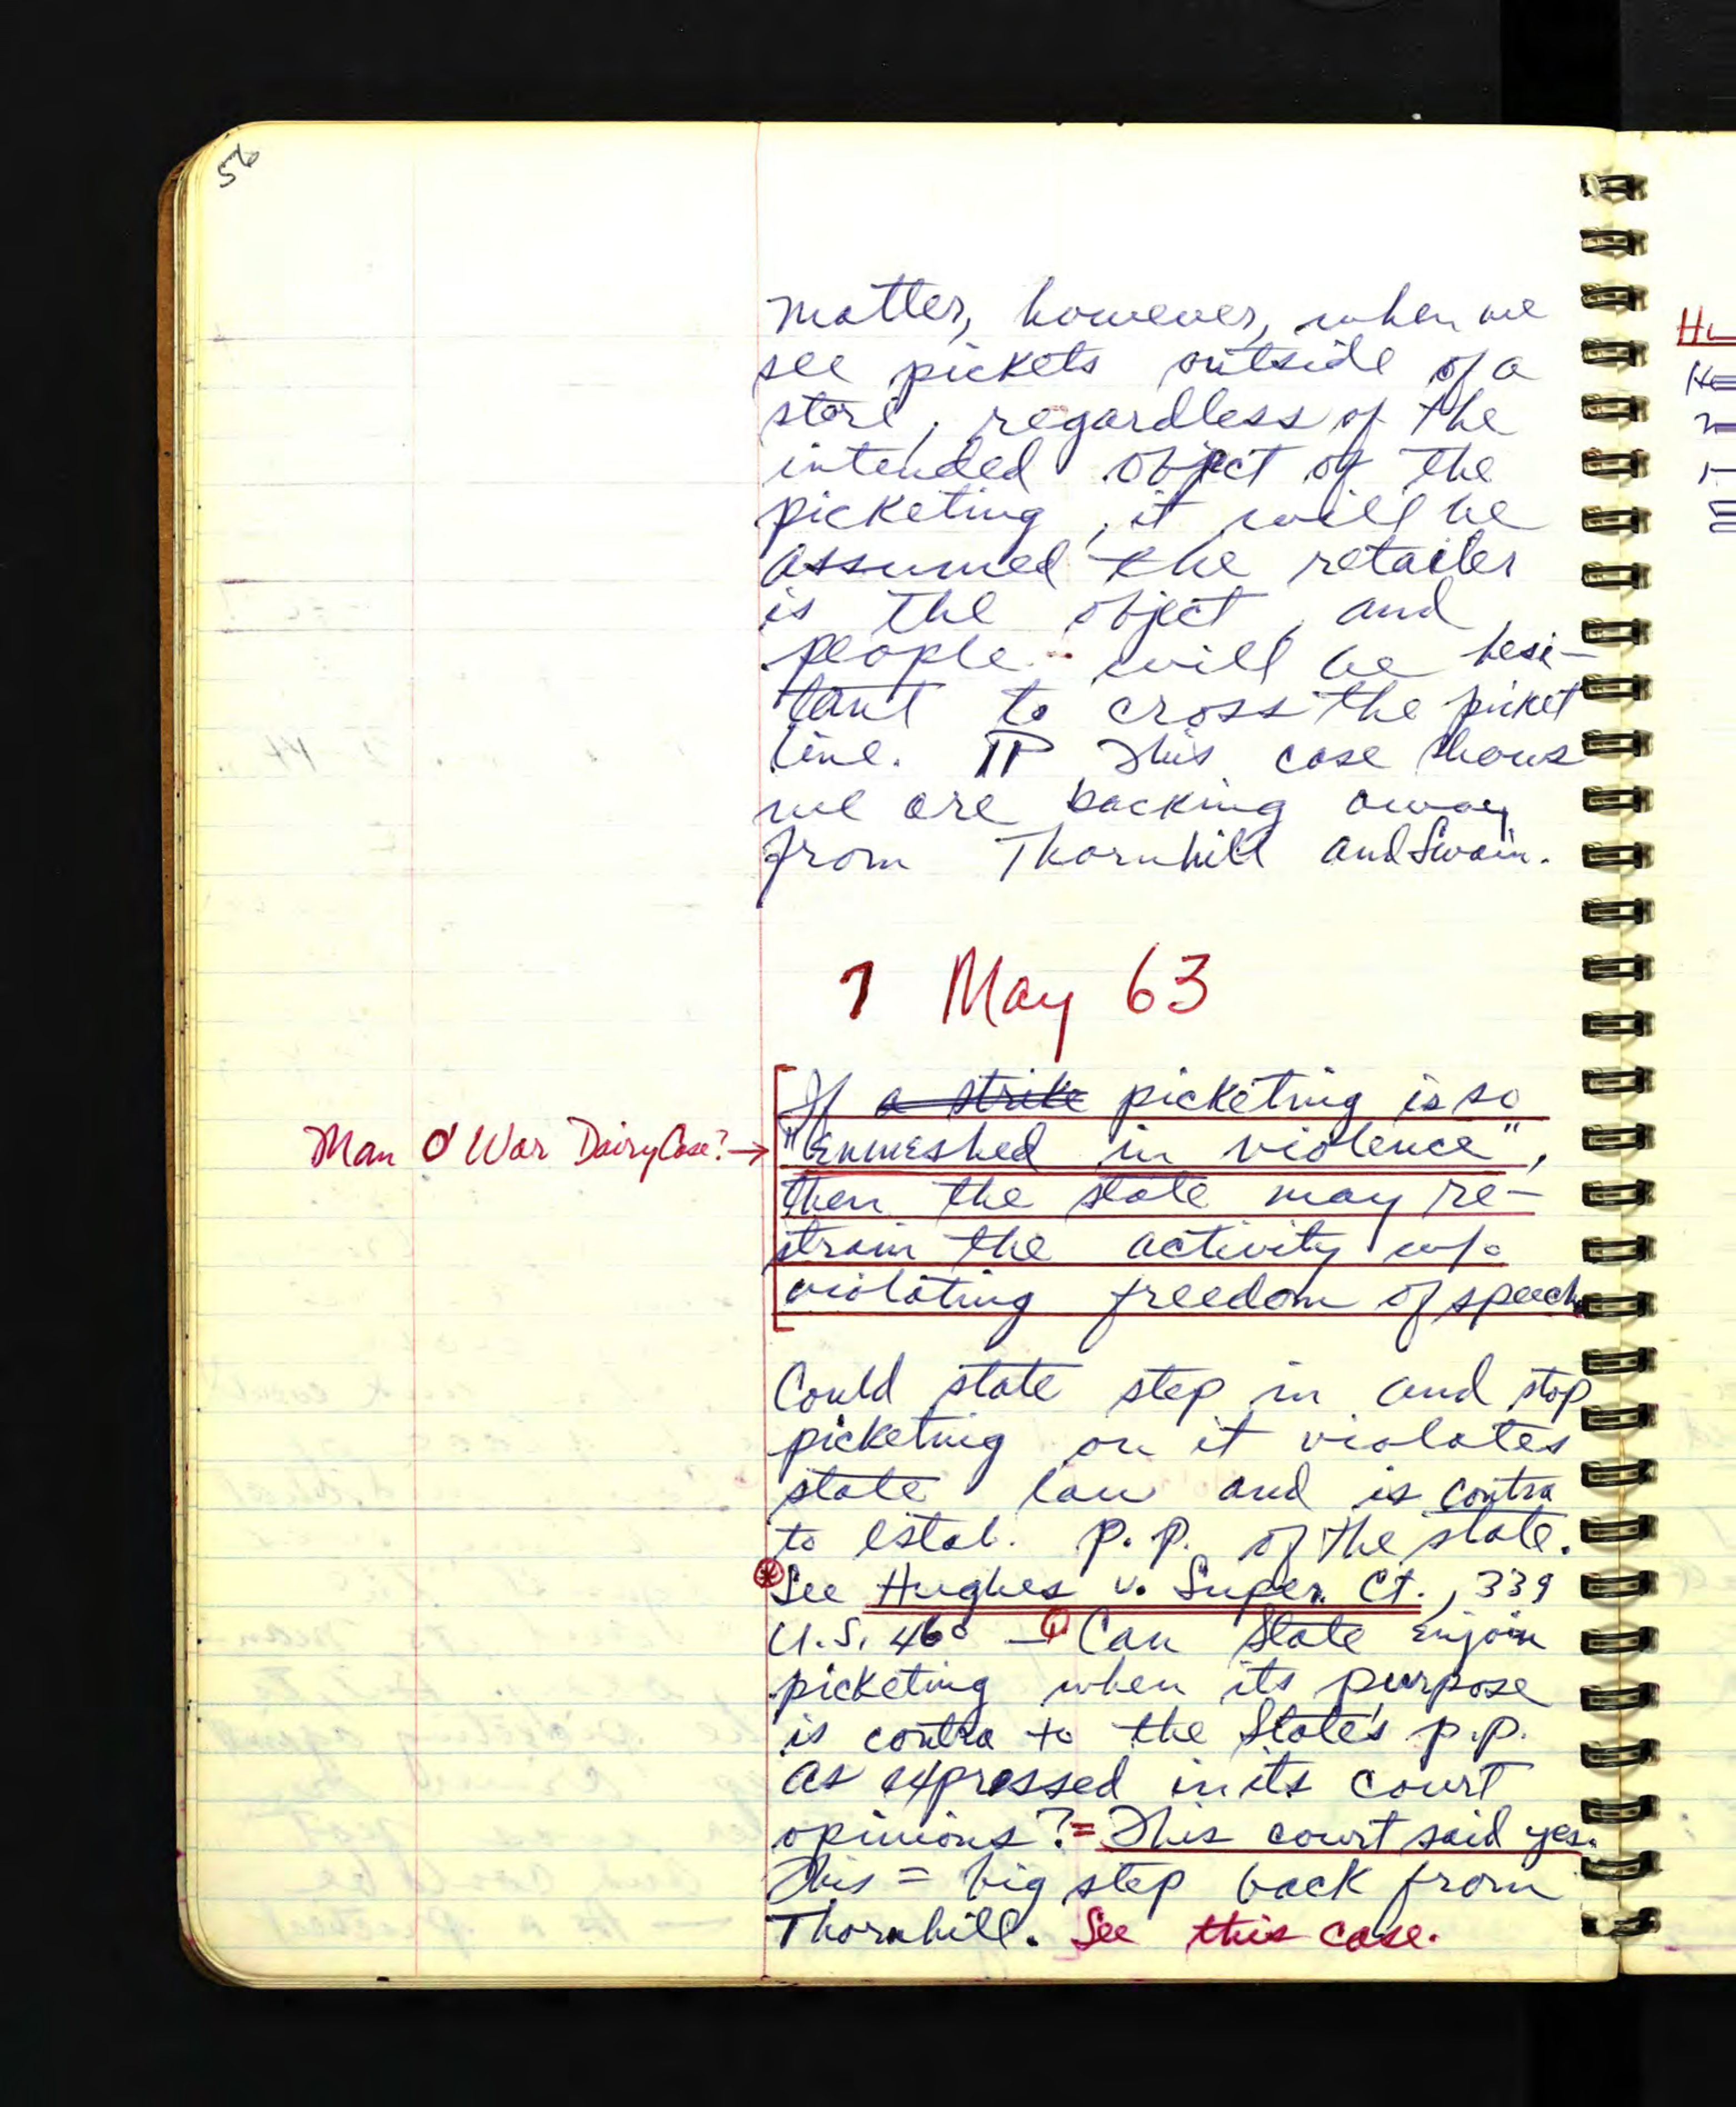 56
matter, however, when we
see pickets outside of a
store, regardless of the
intended object of the
picketing, it will be
assumed the retailer
is the object, and
people will be hesi-
tant to cross the picket
line. ¶ This case shows
we are backing away
from Thornhill and Swain.
7 May 63
If a strike picketing is so
Man O' War Dairy Case? → "enmeshed in violence",
then the state may re-
strain the activity w/o
violating freedom of speech
Could state step in and stop
picketing on it violates
state law and is contra
to estab. p.p. of the state.
* See Hughes v. Super. Ct., 339
U.S. 460 — Q Can State enjoin
picketing when its purpose
is contra to the State's p.p.
as expressed in its court
opinions? = This court said yes.
This = big step back from
Thornhill. See this case.